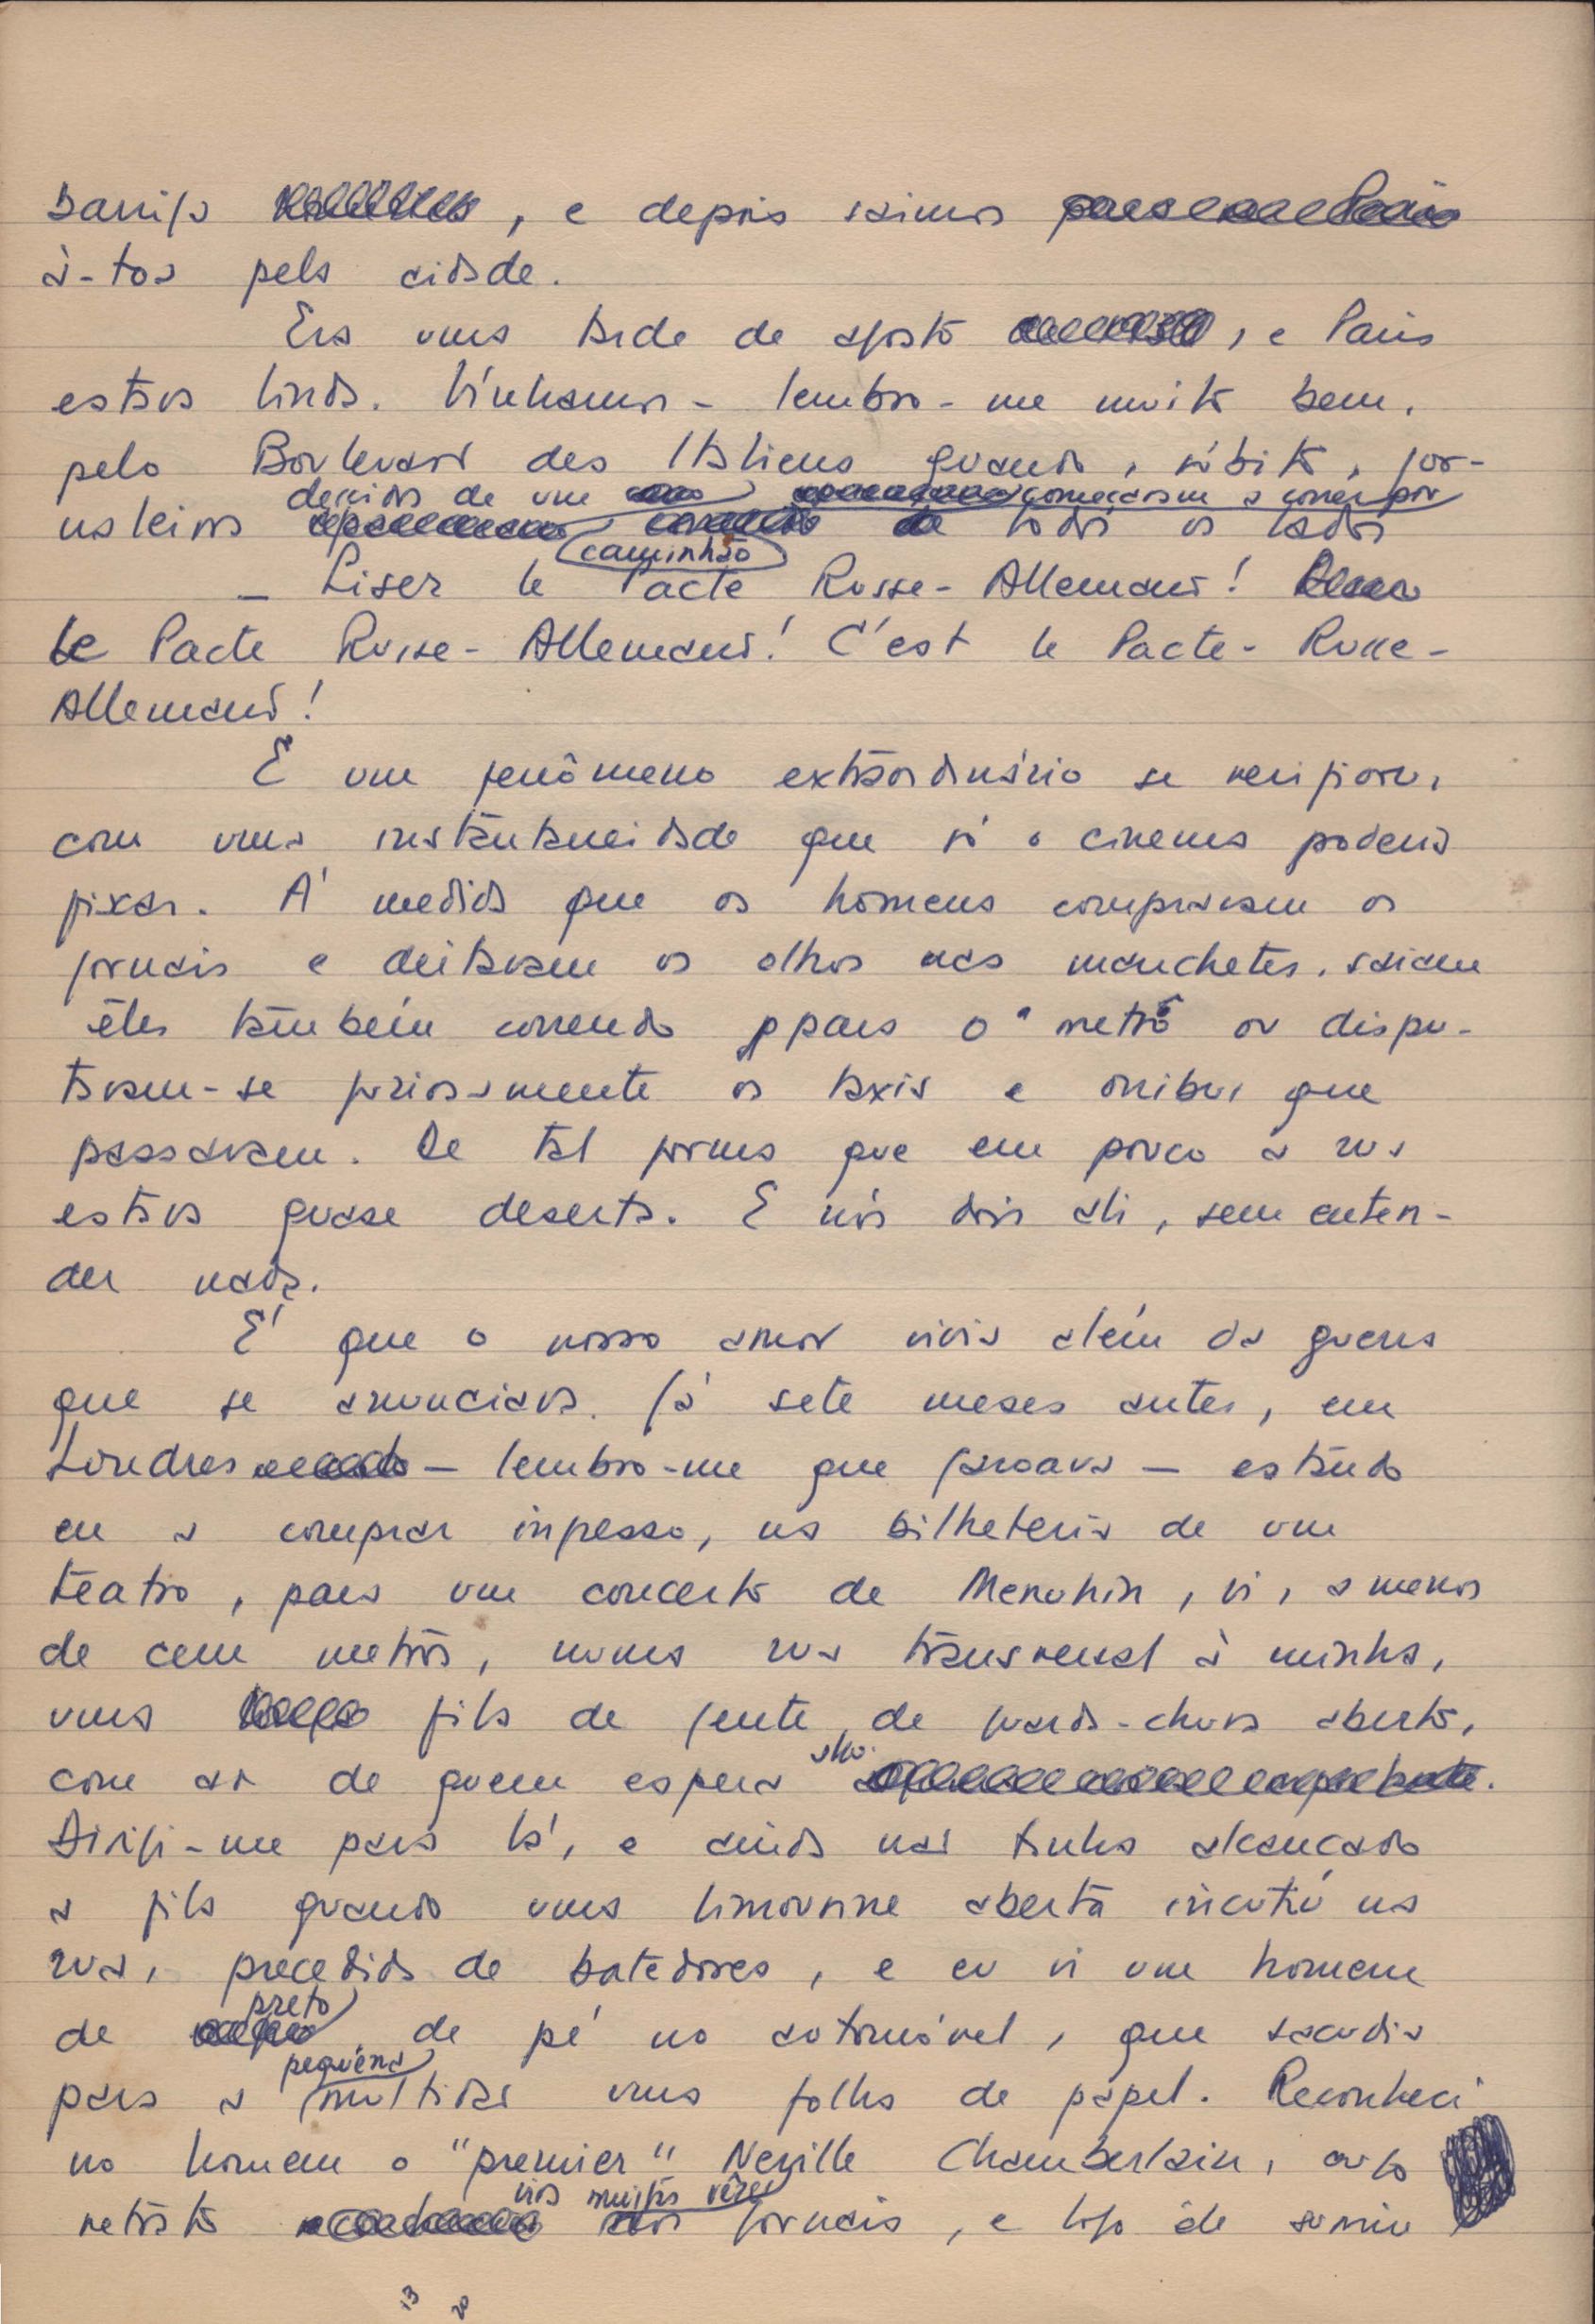 barriga , e depois saímos
à-toa pela cidade.
Era uma tarde de agosto , e Paris
estava linda. Vínhamos - lembro-me muito bem,
pelo Boulevard des Italiens quando, súbito, jor-
descidos de um começaram a correr por
naleiros todos os lados
caminhão
- Liser le Pacte Russe-Allemand!
le Pacte Russe-Allemand! C'est le Pacte-Russe-
Allemand!
E um fenômeno extraordinário se verificou,
com uma instantaneidade que só o cinema poderia
fixar. À medida que os homens compravam os
jornais e deitavam os olhos nas manchetes, saíam
êles também correndo para o metrô ou dispu-
tavam-se furiosamente os taxis e ônibus que
passavam. De tal forma que em pouco a rua
estava quase deserta. E nós dois ali, sem enten-
der nada.
É que o nosso amor vivia além da guerra
que se anunciava. Já sete meses antes, em
Londres — lembro-me que garoava — estando
eu a comprar ingresso, na bilheteria de um
teatro, para um concerto de Menuhin, vi, a menos
de cem metros, numa rua transversal à minha,
uma fila de gente, de guarda-chuva aberto,
com ar de quem espera algo.
Dirigi-me para lá, e ainda não tinha alcançado
a fila quando uma limousine aberta irrompeu na
rua, precedida de batedores, e eu vi um homem
preto
de , de pé no automóvel, que sacudia
pequena
para a multidão uma folha de papel. Reconheci
no homem o "premier" Neville Chamberlain, cujo
vira muitas vêzes
retrato nos jornais, e logo êle sumiu
13 20